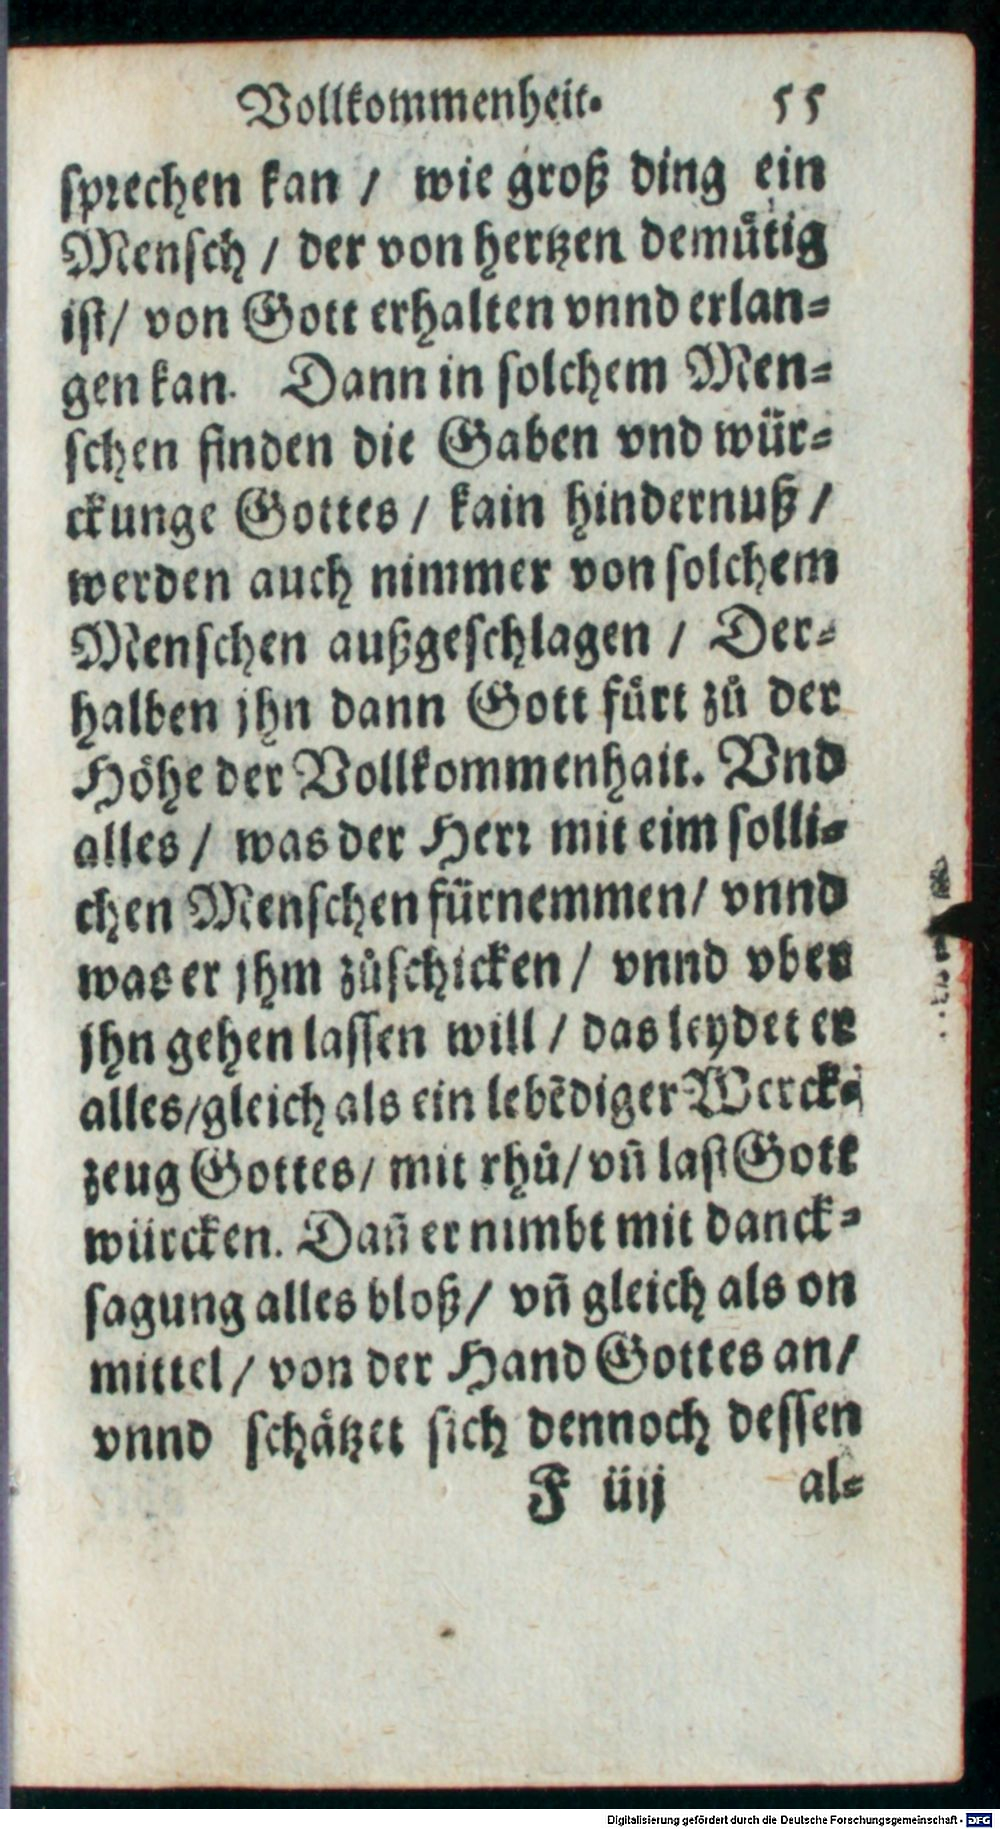 Vollkommenheit. 55
sprechen kan / wie groß ding ein
Mensch / der von hertzen demuͤtig
ist/ von Gott erhalten vnnd erlan⸗
gen kan. Dann in solchem Men⸗
schen finden die Gaben vnd wür⸗
ckunge Gottes / kain hindernuß /
werden auch nimmer von solchem
Menschen außgeschlagen / Der⸗
halben jhn dann Gott fuͤrt zuͦ der
Höhe der Vollkommenhait. Vnd
alles / was der Herr mit eim solli⸗
chen Menschen fürnemmen/ vnnd
was er jhm zuͦschicken / vnnd vber
jhn gehen lassen will / das leydet er
alles/gleich als ein lebēdiger Werck⸗
zeug Gottes/ mit rhuͦ/ vñ last Gott
würcken. Dañ er nimbt mit danck⸗
sagung alles bloß/ vñ gleich als on
mittel / von der Hand Gottes an/
vnnd schaͤtzet sich dennoch dessen
F üij al⸗
Digitalisierung gefördert durch die Deutsche Forschungsgemeinschaft - DFG